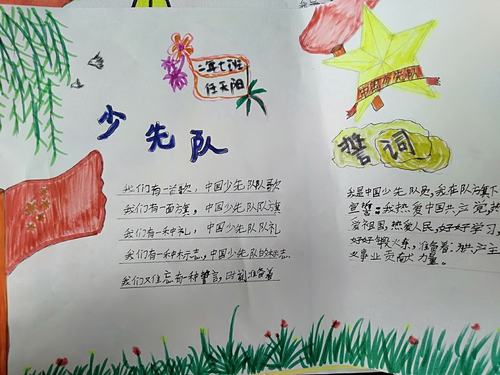 二年七班
任天阳
中国少先队
少先队
誓词
我们有一首歌，中国少先队队歌
我们有一面方旗，中国少先队队旗
我们有一种礼，中国少先队队礼
我们有一种标志，中国少先队的标志
我们又难忘有一种誓言，时刻准备着
我是中国少先队员，我在队旗下
宣誓：我热爱中国共产党，热
爱祖国，热爱人民，好好学习，
好好锻炼，准备着：为共产主
义事业贡献力量。